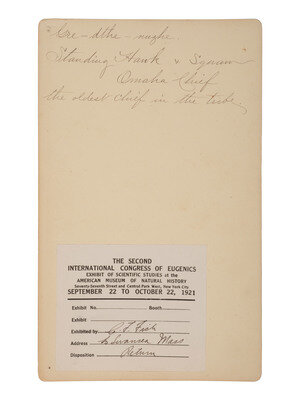 "Gre-dthe-nughe.
Standing Hawk & Squaw
Omaha Chief
the oldest chief in the tribe
THE SECOND
INTERNATIONAL CONGRESS OF EUGENICS
EXHIBIT OF SCIENTIFIC STUDIES at the
AMERICAN MUSEUM OF NATURAL HISTORY
Seventy-Seventh Street and Central Park West, New York City
SEPTEMBER 22 TO OCTOBER 22, 1921
Exhibit No. Booth
Exhibit
Exhibited by C F Fish
Address Swansea Mass
Disposition Return